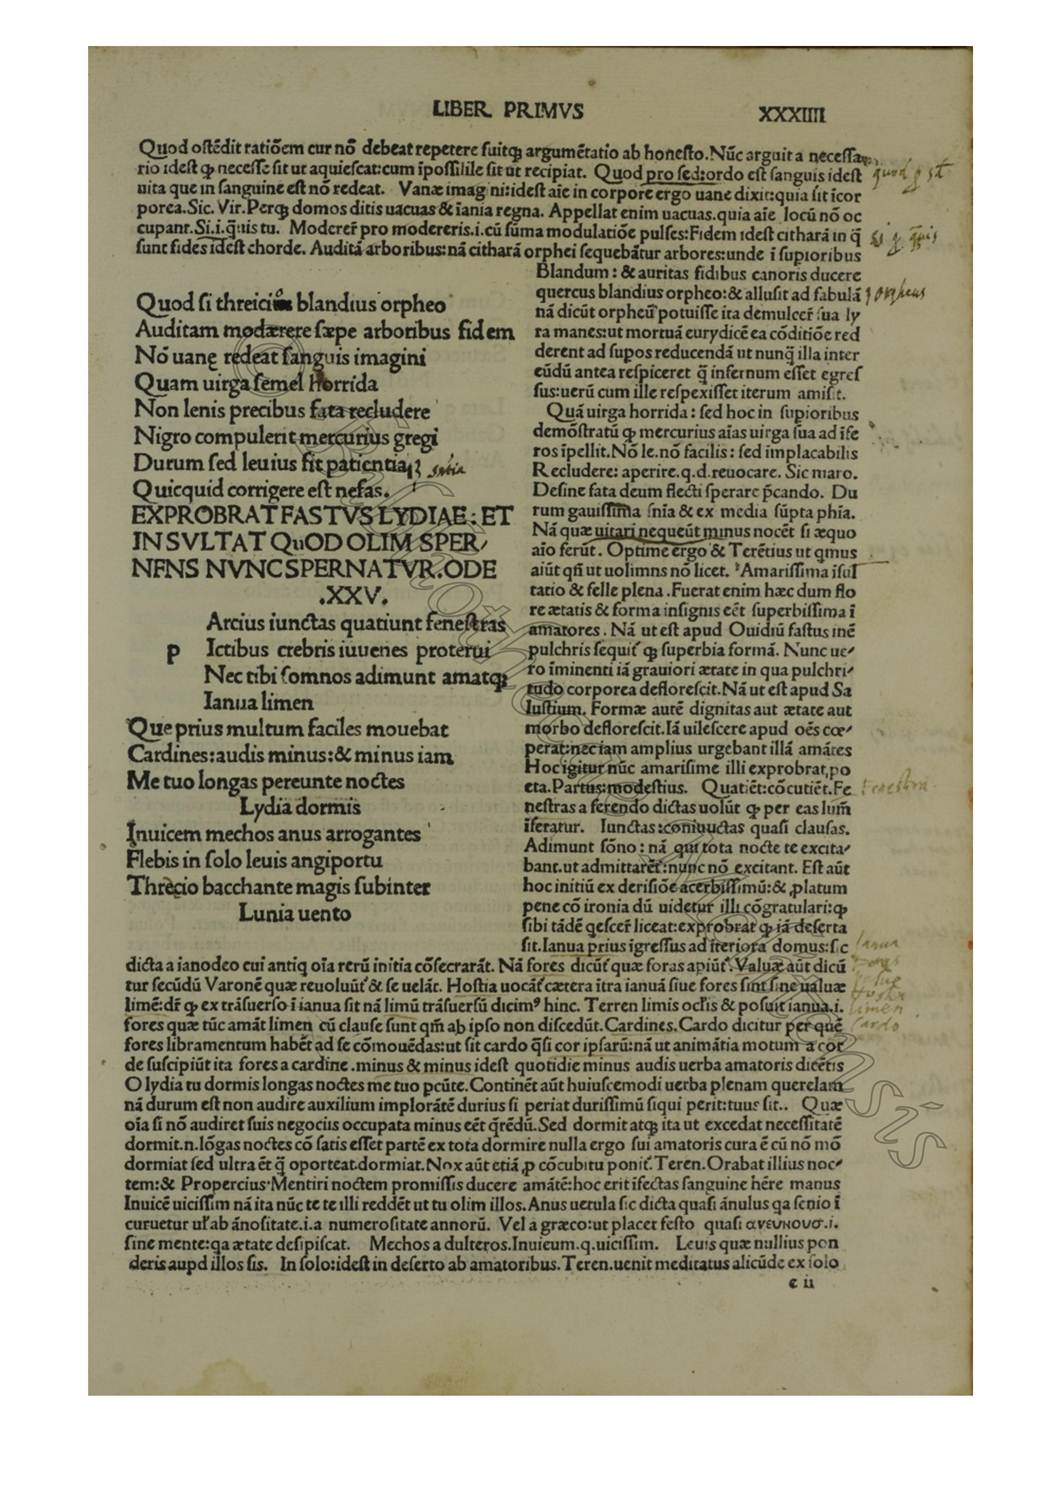 LIBER PRIMVS XXXIIII
Quod ostēdit ratiōem cur nō debeat repetere suitꝙ argumētatio ab honesto. Nūc arguit a necessa
rio idest ꝙ necesse sit ut aquiescat: cum īpossilile sit ut recipiat. Quod pro sed: ordo est sanguis idest
uita que in sanguine est nō redeat. Vanæ imagini: idest aīe in corpore ergo uane dixit: quia sit īcor
porea. Sic. Vir. Perꝙ domos ditis uacuas & īania regna. Appellat enim uacuas. quia aīe locū nō oc
cupant. Si. i. q̄uis tu. Moderer̄ pro modereris. i. cū sūma modulatiōe pulses: Fidem idest citharā in q̄
sunt fides idest chorde. Auditā arboribus: nā citharā orphei sequebātur arbores: unde ī supioribus
Quod si threicio blandius orpheo
Auditam modærere sæpe arboribus fidem
Nō uanę redeat sanguis imagini
Quam uirga semel horrida
Non lenis precibus fata recludere
Nigro compulerit mercurius gregi
Durum sed leuius fit patientia
Quicquid corrigere est nefas.
EXPROBRAT FASTVS LYDIAE: ET
INSVLTAT QuOD OLIM SPER/
NENS NVNC SPERNATVR. ODE
.XXV.
Arcius iunctas quatiunt fenestras
p Ictibus crebris iuuenes proterui
Nec tibi somnos adimunt amatꝙ
Ianua limen
Que prius multum faciles mouebat
Cardines: audis minus: & minus iam
Me tuo longas pereunte noctes
Lydia dormis
Inuicem mechos anus arrogantes
Flebis in solo leuis angiportu
Threcio bacchante magis subinter
Lunia uento
Blandum: & auritas fidibus canoris ducere
quercus blandius orpheo: & allusit ad fabulā
nā dicūt orpheū potuisse ita demulcer̄ sua ly
ra manes: ut mortuā eurydicē ea cōditiōe red
derent ad supos reducendā ut nunq̄ illa inter
eūdū antea respiceret q̄ infernum esset egres
sus: uerū cum ille respexisset iterum amisit.
Quā uirga horrida: sed hoc in supioribus
demōstratū ꝙ mercurius aīas uirga sua ad īfe
ros īpellit. Nō le. nō facilis: sed implacabilis
Recludere: aperire. q. d. reuocare. Sic maro.
Desine fata deum flecti sperare p̄cando. Du
rum gauissima sn̄ia & ex media sūpta phīa.
Nā quæ uitari nequeūt minus nocēt si æquo
aīo ferūt. Optime ergo & Terētius ut qmus
aiūt qn̄ ut uolimns nō licet. Amarissima īsul
tatio & felle plena. Fuerat enim hæc dum flo
re ætatis & forma insignis eēt superbissima ī
amatores. Nā ut est apud Ouidiū fastus inē
pulchris sequit̄ ꝙ superbia formā. Nunc ue/
ro īminenti iā grauiori ætate in qua pulchri/
tudo corporea deflorescit. Nā ut est apud Sa
lustium. Formæ autē dignitas aut ætate aut
morbo deflorescit. Iā uilescere apud oēs cœ/
perat: nec iam amplius urgebant illā amātes
Hoc igitur nūc amarisime illi exprobrat, po
eta. Partus: modestius. Quatiēt: cōcutiēt. Fe
nestras a ferendo dictas uolūt ꝙ per eas lum̄
īferatur. Iunctas: coniuuctas quasi clausas.
Adimunt sōno: nā qui tota nocte te excita/
bant. ut admittarēt̄: nunc nō excitant. Est aūt
hoc initiū ex derisiōe acerbissimū: & platum
pene cō ironia dū uidetur illi cōgratulari: ꝙ
sibi tādē q̄escer̄ liceat: exprobrat ꝙ iā deserta
sit. Ianua prius īgressus ad īteriora domus: sic
dicta a ianodeo cui antiq̄ oīa rerū initia cōsecrarāt. Nā fores dicūt̄ quæ foras apiūt̄. Valuæ aūt dicū
tur secūdū Varonē quæ reuoluūt̄ & se uelāt. Hostia uocāt̄ cætera ītra ianuā siue fores sint siue ualuæ
limē: dr̄ ꝙ ex trāsuerso ī ianua sit nā limū trāsuersū dicimꝰ hinc. Terren limis oclis & posuit ianua. i.
fores quæ tūc amāt limen cū clause sunt qm̄ ab ipso non discedūt. Cardines. Cardo dicitur per quē
fores libramentum habēt ad se cōmouēdas: ut sit cardo q̄si cor ipsarū: nā ut animātia motum a cor
de suscipiūt ita fores a cardine. minus & minus idest quotidie minus audis uerba amatoris dicētis
O lydia tu dormis longas noctes me tuo pcūte. Continēt aūt huiuscemodi uerba plenam querelam
nā durum est non audire auxilium implorātē durius si periat durissimū siqui perit: tuus sit.. Quæ
oīa si nō audiret suis negociis occupata minus eēt q̄rēdū. Sed dormit atꝙ ita ut excedat necessitatē
dormit. n. lōgas noctes cō satis esset partē ex tota dormire nulla ergo sui amatoris cura ē cū nō mō
dormiat sed ultra ēt q̄ oporteat. dormiat. Nox aūt etiā p cōcubitu ponit̄. Teren. Orabat illius noc/
tem: & Propercius. Mentiri noctem promissis ducere amātē: hoc erit īfectas sanguine hēre manus
Inuicē uicissim nā ita nūc te te illi reddēt ut tu olim illos. Anus uetula sic dicta quasi ānulus qa senio ī
curuetur ul̄ ab ānositate. i. a numerositate annorū. Vel a græco: ut placet festo quasi ανευνουσ. i.
sine mente: qa ætate desipiscat. Mechos adulteros. Inuicum. q. uicissim. Leuis quæ nullius pon
deris aupd illos sis. In solo: idest in deserto ab amatoribus. Teren. uenit meditatus alicūde ex solo
e ii
orpheus
Fenestra
Ianua
fores
Limen
Cardo